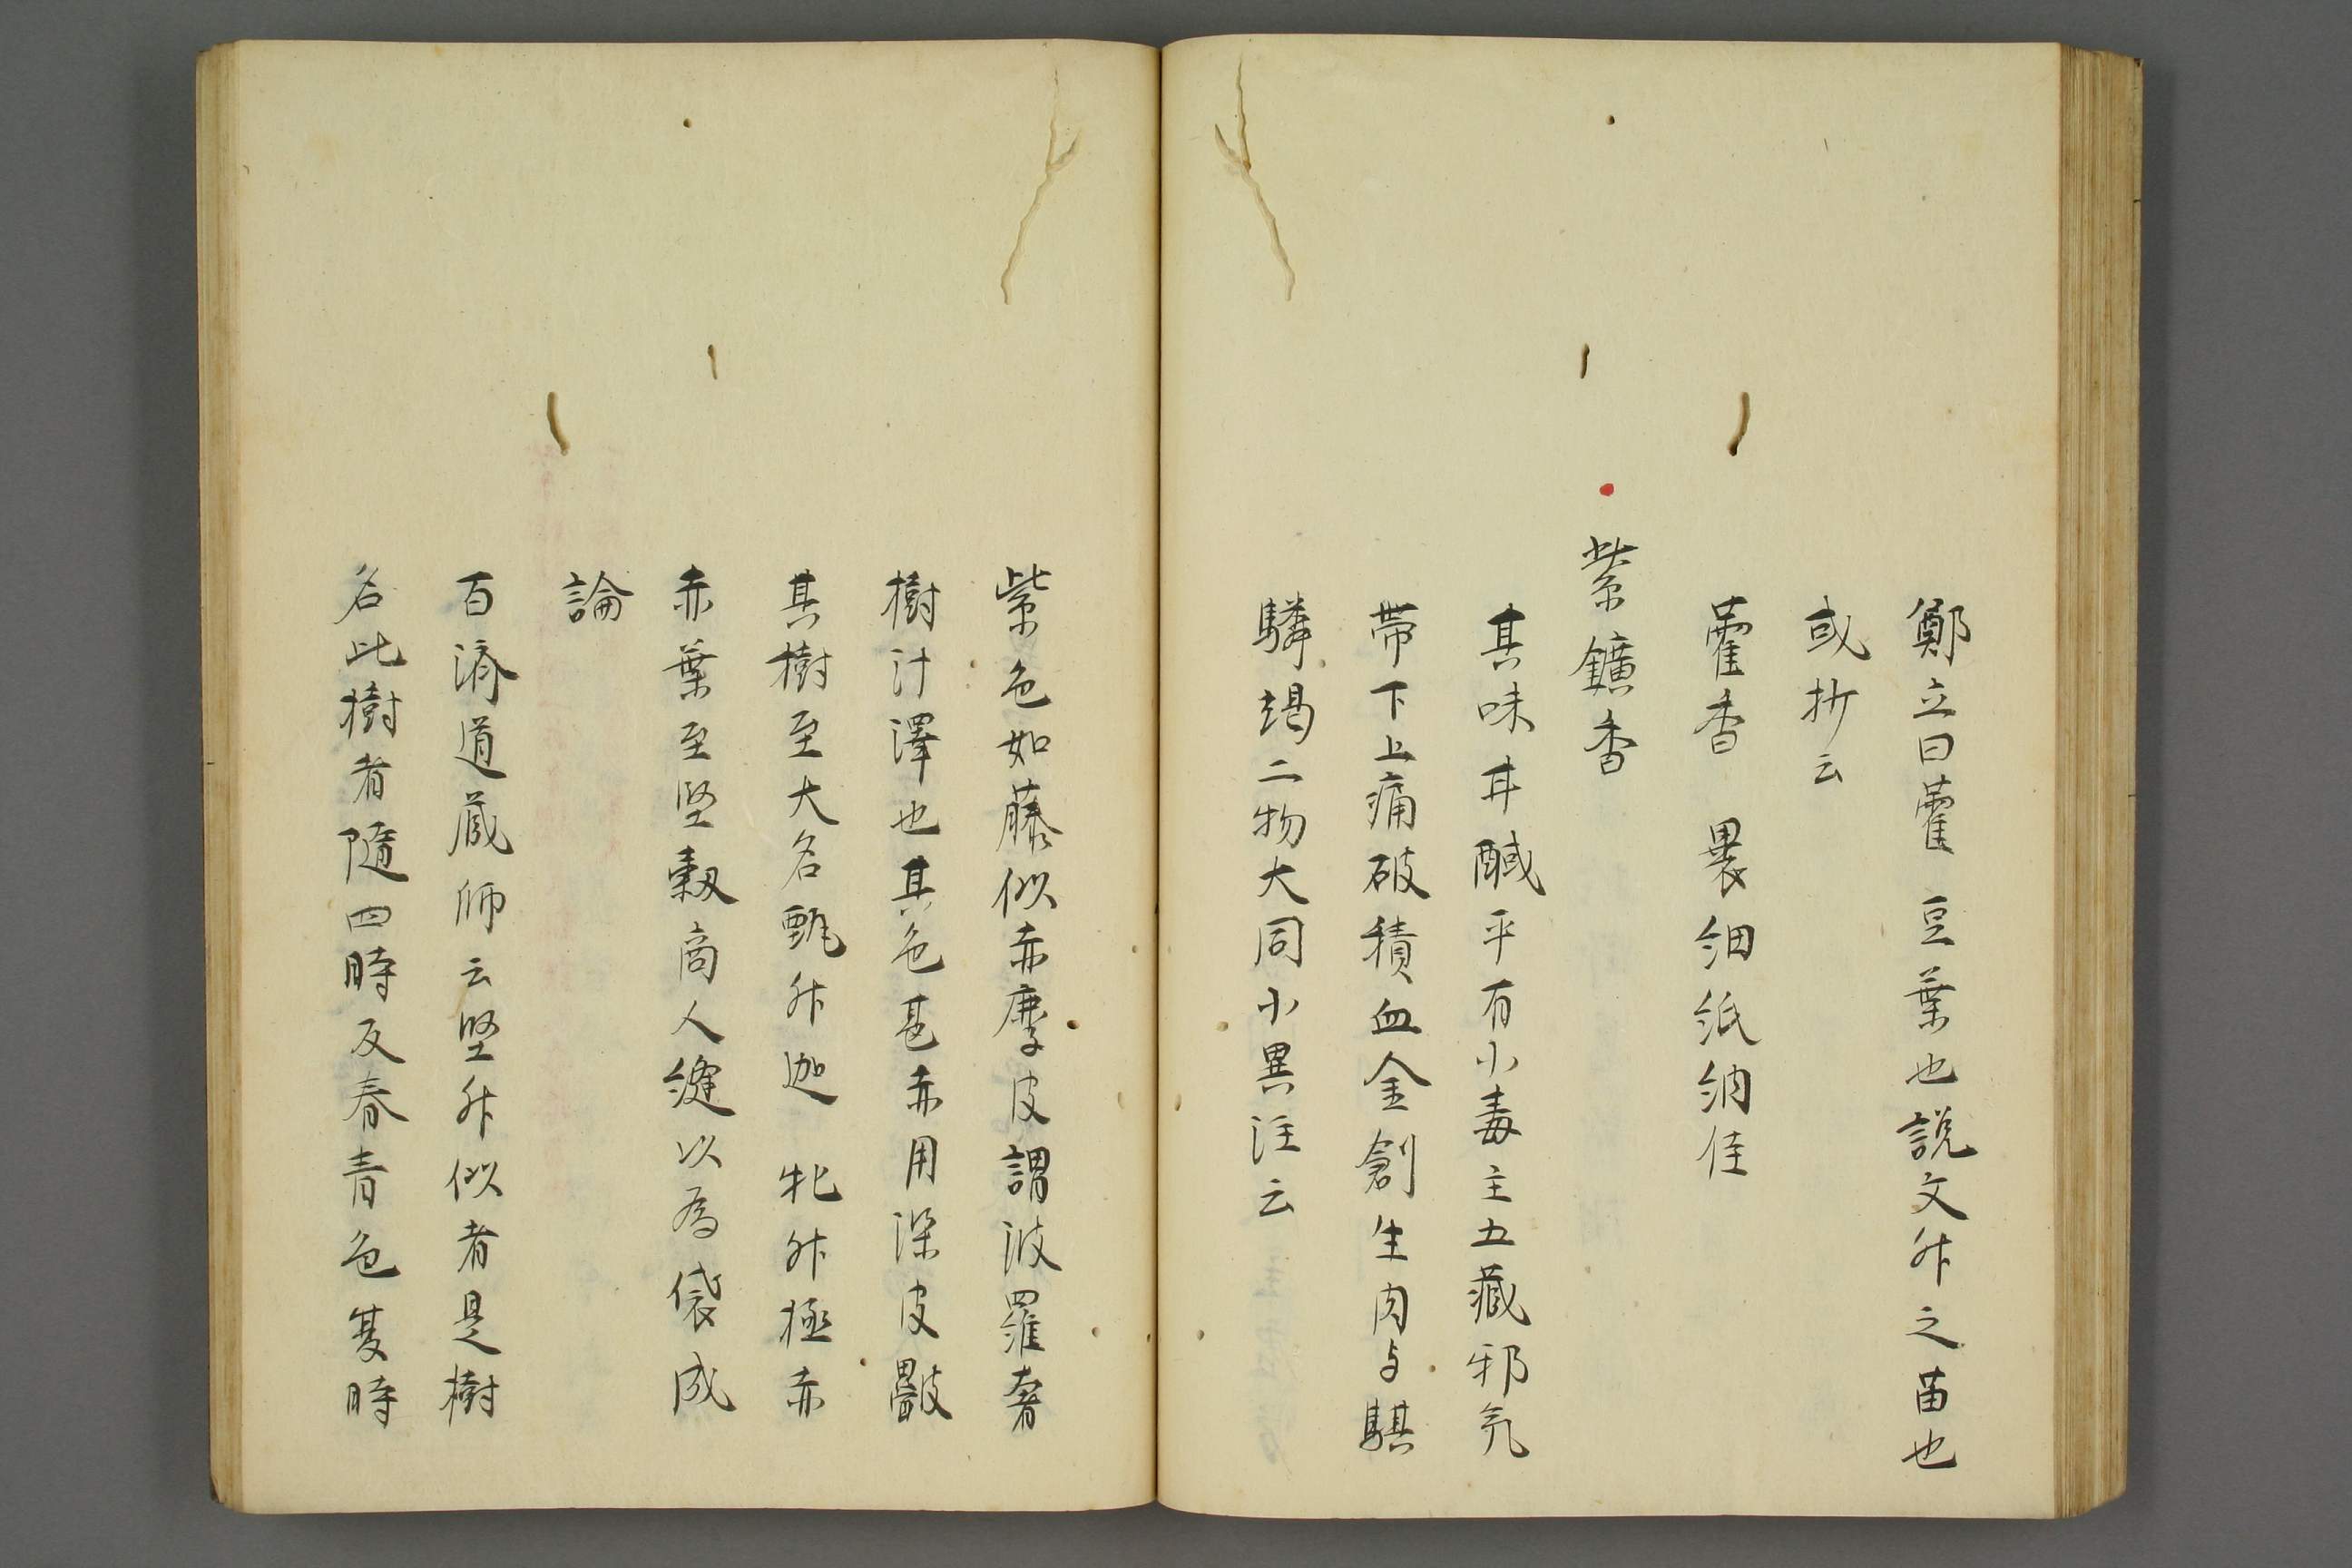 鄭立曰藿 豆葉也説文尗之苗也
或抄云
藿香 裹細紙納佳
紫鑛香
其味甘醎平有小毒主五蔵邪氕
帯下上痛破積血金創生肉与騏
驎竭二物大同小異注云
紫色如藤似赤麖皮謂波羅奢
樹汁澤也其色甚赤用深皮
其樹至大名甄尗迦 牝尗極赤
赤葉至堅商人縫以為袋成
論
百済道蔵師云堅尗似者是樹
名此樹者随四時反春青色夏時